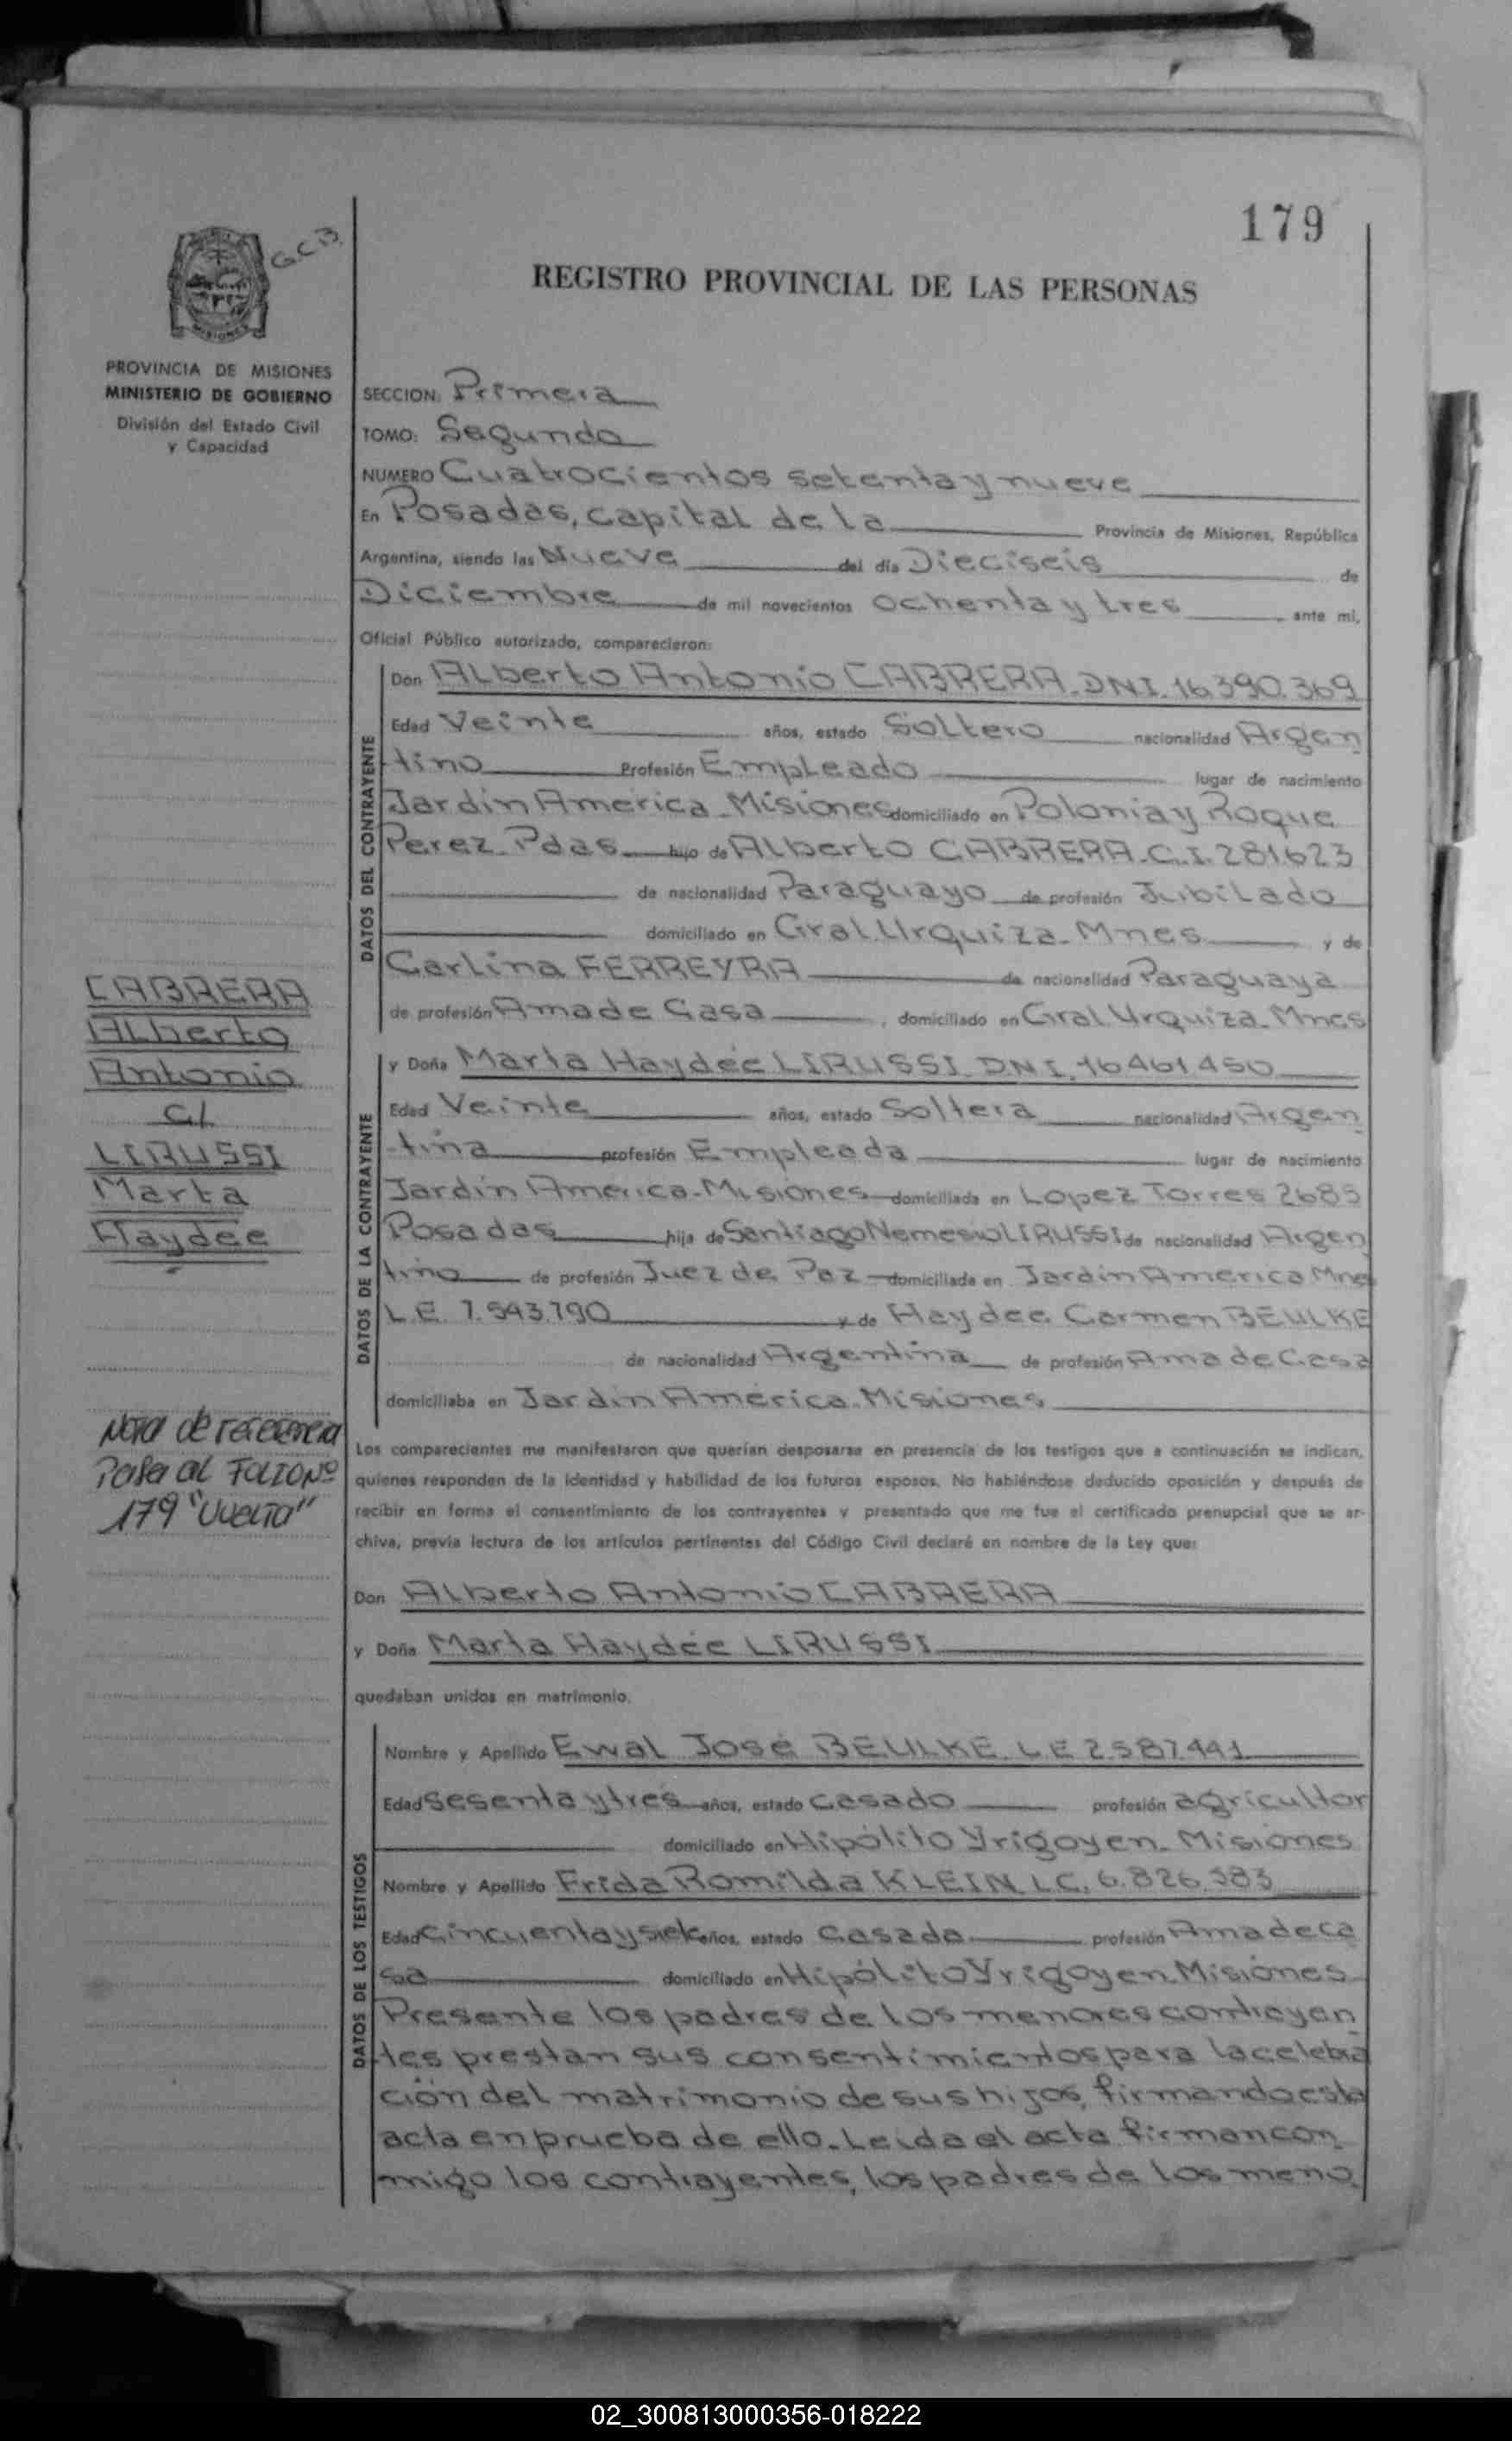 179
G.C.B.
REGISTRO PROVINCIAL DE LAS PERSONAS
MISIONES
PROVINCIA DE MISIONES
MINISTERIO DE GOBIERNO
División del Estado Civil
y Capacidad
SECCION: Primera
TOMO: Segundo
NUMERO Cuatrocientos setenta y nueve
En Posadas, capital de la Provincia de Misiones, República
Argentina, siendo las Nueve del día Dieciseis de
Diciembre de mil novecientos ochenta y tres ante mi,
Oficial Público autorizado, comparecieron:
DATOS DEL CONTRAYENTE
Don Alberto Antonio CABRERA. DNI. 16.390.369
Edad Veinte años, estado Soltero nacionalidad Argen
tino Profesión Empleado lugar de nacimiento
Jardín América - Misiones domiciliado en Polonia y Roque
Perez - Pdas. hijo de Alberto CABRERA. C.I. 281.623
de nacionalidad Paraguayo de profesión Jubilado
domiciliado en Gral. Urquiza - Mnes y de
Carlina FERREYRA de nacionalidad Paraguaya
de profesión Ama de Casa, domiciliado en Gral. Urquiza - Mnes
DATOS DE LA CONTRAYENTE
y Doña Marta Haydée LIRUSSI. DNI. 16.461.450
Edad Veinte años, estado Soltera nacionalidad Argen
tina profesión Empleada lugar de nacimiento
Jardín América - Misiones domiciliada en Lopez Torres 2685
Posadas hija de Santiago Nemesio LIRUSSI de nacionalidad Argen
tino de profesión Juez de Paz domiciliada en Jardín América Mnes
L.E. 7.543.790 y de Haydee Carmen BEULKE
de nacionalidad Argentina de profesión Ama de Casa
domiciliaba en Jardín América - Misiones
CABRERA
Alberto
Antonio
c/
LIRUSSI
Marta
Haydée
Nota de referencia
Pasa al Folio Nº
179 "Vuelta"
Los comparecientes me manifestaron que querían desposarse en presencia de los testigos que a continuación se indican,
quienes responden de la identidad y habilidad de los futuros esposos. No habiéndose deducido oposición y después de
recibir en forma el consentimiento de los contrayentes y presentado que me fue el certificado prenupcial que se ar-
chiva, previa lectura de los artículos pertinentes del Código Civil declaré en nombre de la Ley que:
Don Alberto Antonio CABRERA
y Doña Marta Haydée LIRUSSI
quedaban unidos en matrimonio.
DATOS DE LOS TESTIGOS
Nombre y Apellido Ewal José BEULKE. L.E 2.587.441
Edad Sesenta y tres años, estado Casado profesión agricultor
domiciliado en Hipólito Yrigoyen - Misiones
Nombre y Apellido Frida Romilda KLEIN L.C. 6.826.583
Edad Cincuenta y siete años, estado Casada profesión Ama de ca
sa domiciliado en Hipólito Yrigoyen - Misiones
Presente los padres de los menores contrayen
tes prestan sus consentimientos para la celebra
ción del matrimonio de sus hijos, firmando esta
acta en prueba de ello. Leída el acta firman con
migo los contrayentes, los padres de los meno
02_300813000356-018222